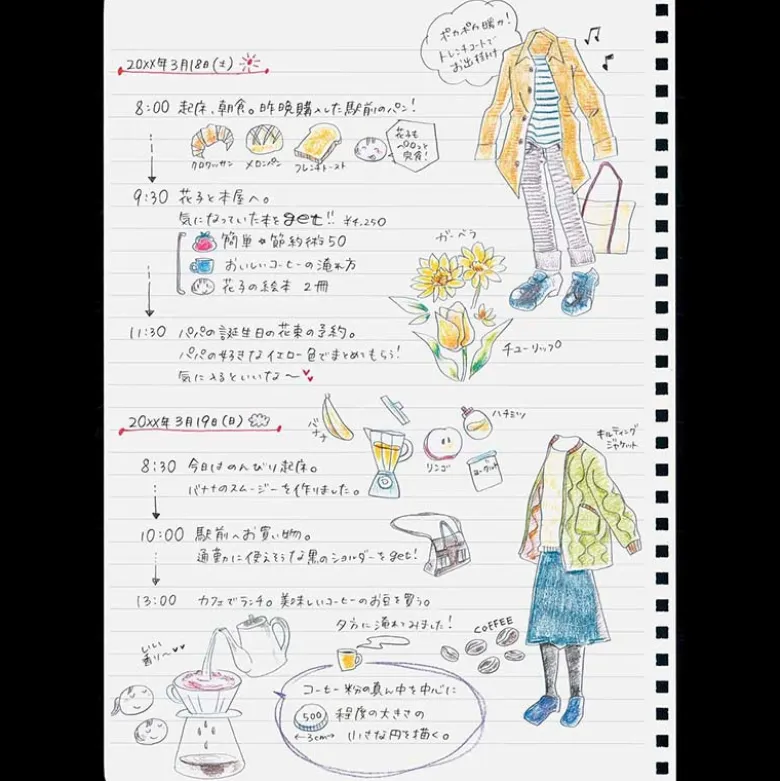 ポカポカ暖か!
トレンチコートで
お出掛け
20XX年3月18日(土)
8:00 起床、朝食。昨晩購入した駅前のパン!
クロワッサン
メロンパン
フレンチトースト
花子も
ペロッと
完食!
9:30 花子と本屋へ。
気になっていた本をget!! ¥4,250
簡単♥節約術50
おいしいコーヒーの淹れ方
花子の絵本 2冊
ガーベラ
11:30 パパの誕生日の花束の予約。
パパの好きなイエロー色でまとめてもらう!
気に入るといいな〜♥♥
チューリップ
20XX年3月19日(日)
バナナ
ハチミツ
リンゴ
ヨーグルト
キルティング
ジャケット
8:30 今日はのんびり起床。
バナナのスムージーを作りました。
10:00 駅前へお買い物。
通勤に使えそうな黒のショルダーをget!
13:00 カフェでランチ。美味しいコーヒーのお豆を買う。
夕方に淹れてみました!
COFFEE
いい
香り〜♥♥
コーヒー粉の真ん中を中心に
500 程度の大きさの
←3cm→ 小さな円を描く。